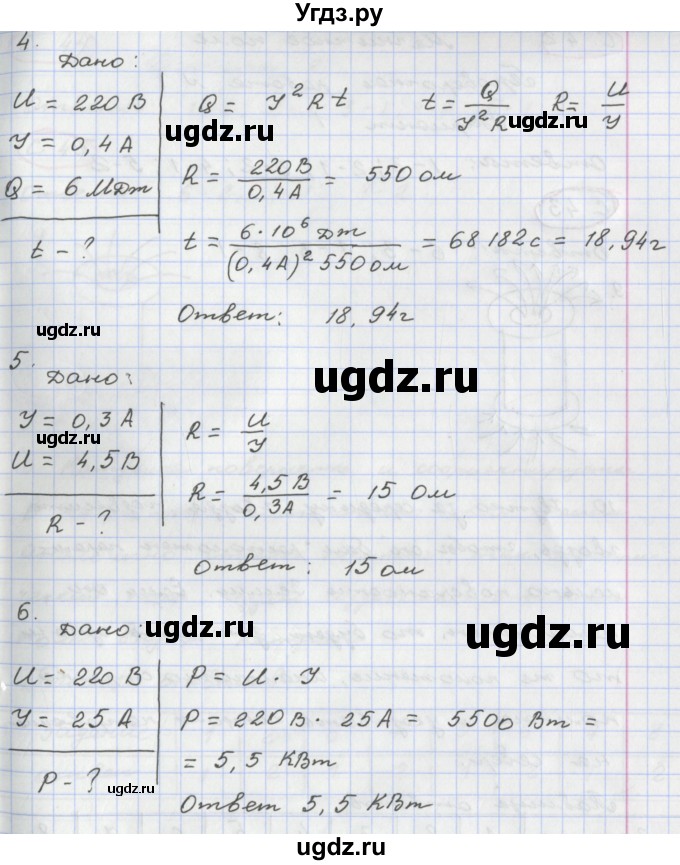 Угдз.ру
4.
Дано:
U = 220 В
У = 0,4 А
Q = 6 МДж
t - ?
Q = У² R t    t = Q / У² R    R = U / У
R = 220 В / 0,4 А = 550 ом
t = 6 · 10⁶ Дж / (0,4 А)² 550 ом = 68 182 с = 18,94 г
Ответ: 18,94 г
5.
Дано:
У = 0,3 А
U = 4,5 В
R - ?
R = U / У
R = 4,5 В / 0,3 А = 15 Ом
Ответ: 15 ом
6.
Дано:
U = 220 В
У = 25 А
P - ?
P = U · У
P = 220 В · 25 А = 5500 Вт =
= 5,5 КВт
Ответ 5,5 КВт
ugdz.ru
ugdz.ru
ugdz.ru
ugdz.ru
ugdz.ru
ugdz.ru
ugdz.ru
ugdz.ru
ugdz.ru
ugdz.ru